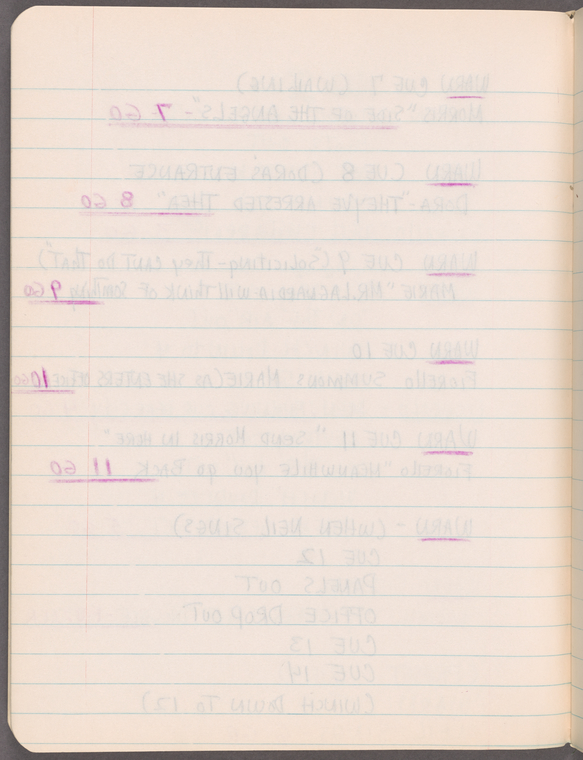 WARN CUE 7 (WAILING)
MORRIS "SIDE OF THE ANGELS" - 7 GO
WARN CUE 8 (DORA'S ENTRANCE
DORA - "THEY'VE ARRESTED THEA" 8 GO
WARN CUE 9 (Soliciting - They can't Do That")
MARIE "MR. LAGUARDIA will THINK OF Something 9 GO
WARN CUE 10
FIORELLO SUMMONS MARIE (AS SHE ENTERS OFFICE) 10 GO
WARN CUE 11 "SEND MORRIS IN HERE"
FIORELLO "MEANWHILE YOU GO BACK 11 GO
WARN - (WHEN NEIL SINGS)
CUE 12
PANELS OUT
OFFICE DROP OUT
CUE 13
CUE 14
(WINCH DOWN TO 12)